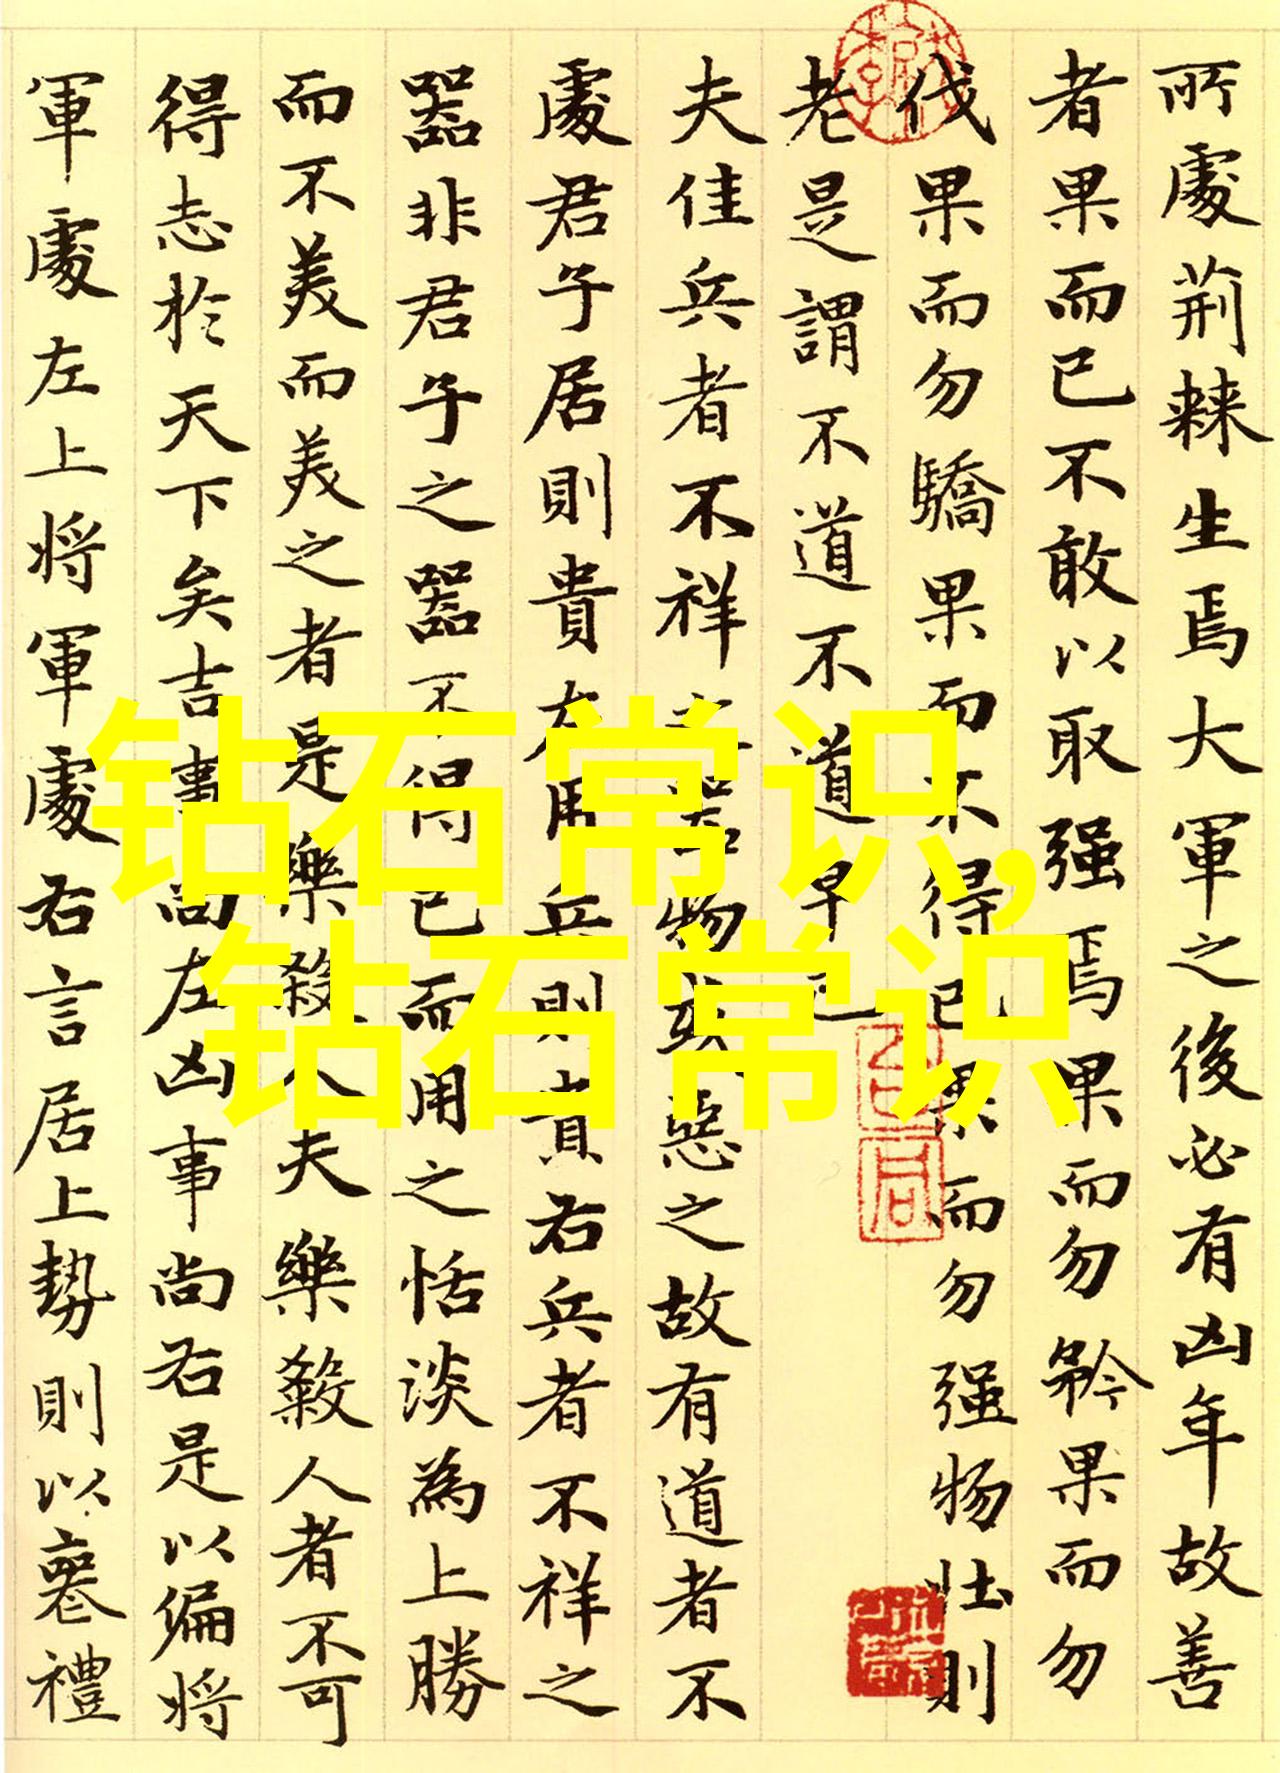 所處荊棘生焉大軍之後必有凶年故善
者果而已不敢以取强焉果而勿矜果而勿
伐果而勿驕果而不得已果而勿强物壮則
老是謂不道不道早已
夫佳兵者不祥之器物或惡之故有道者不
處君子居則貴左用兵則貴右兵者不祥之
器非君子之器不得已而用之恬淡為上勝
而不美而美之者是樂殺人夫樂殺人者不可
得志於天下矣吉事尚左凶事尚右是以偏将
軍處左上将軍處右言居上勢則以喪禮
钻石常识,
钻石常识